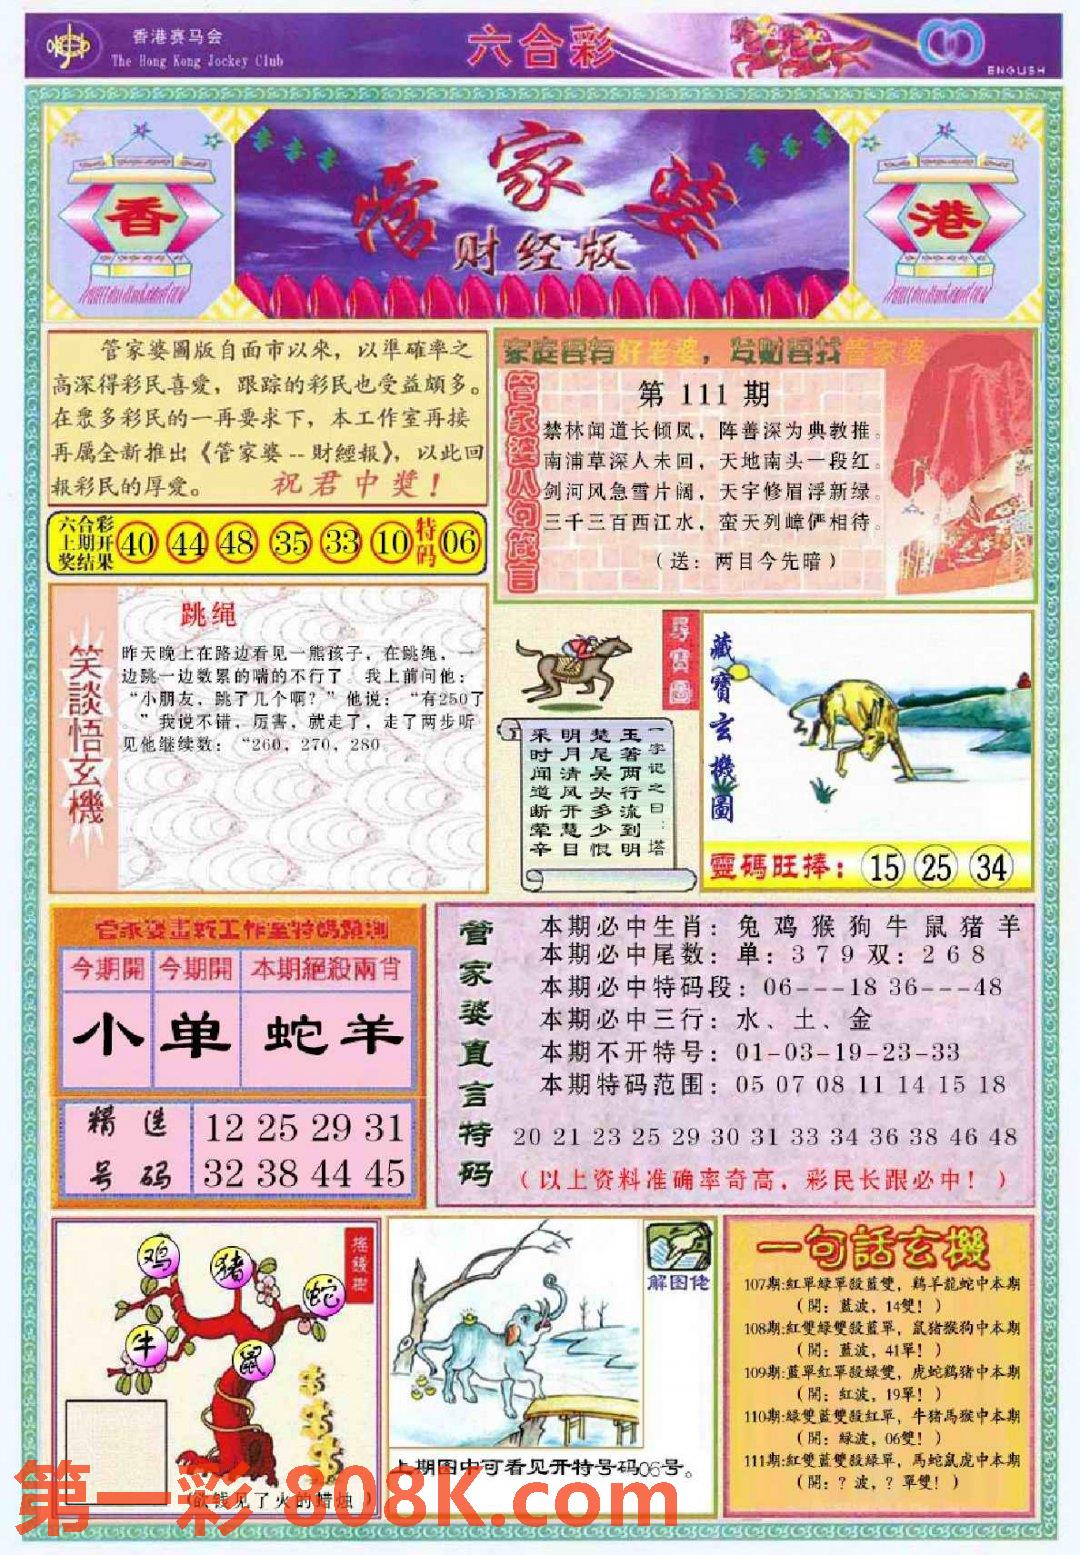 香港赛马会
The Hong Kong Jockey Club
六合彩
ENGLISH
香
管家婆
财经版
港
管家婆圖版自面市以來，以準確率之
高深得彩民喜愛，跟踪的彩民也受益頗多。
在眾多彩民的一再要求下，本工作室再接
再屬全新推出《管家婆--財經報》，以此回
報彩民的厚愛。
祝君中獎！
六合彩
上期开
奖结果
40 44 48 35 33 10
特码
06
家庭要有好老婆，发财要找管家婆
管家婆八句箴言
第 111 期
禁林闻道长倾凤，阵善深为典教推。
南浦草深人未回，天地南头一段红。
剑河风急雪片阔，天宇修眉浮新绿。
三千三百西江水，蛮天列嶂俨相待。
（送：两目今先暗）
笑談悟玄機
跳绳
昨天晚上在路边看见一熊孩子，在跳绳，一
边跳一边数累的喘的不行了，我上前问他：
“小朋友，跳了几个啊？”他说：“有250了
”我说不错，厉害，就走了，走了两步听
见他继续数：“260，270，280
尋寶圖
一字记之曰：塔
玉著两行流到明
楚尾吴头多少恨
明月清风开慧目
采时闻道断荤辛
藏寶玄機圖
靈碼旺捧：15 25 34
管家婆畫新工作室特碼預測
今期開 今期開 本期絕殺兩肖
小 单 蛇羊
精选
号码
12 25 29 31
32 38 44 45
管家婆直言特码
本期必中生肖：兔鸡猴狗牛鼠猪羊
本期必中尾数：单：379双：268
本期必中特码段：06---18 36---48
本期必中三行：水、土、金
本期不开特号：01-03-19-23-33
本期特码范围：05 07 08 11 14 15 18
20 21 23 25 29 30 31 33 34 36 38 46 48
（以上资料准确率奇高，彩民长跟必中！）
搖錢樹
鸡
猪
蛇
牛
鼠
（欲钱见了火的蜡烛）
解图佬
上期图中可看见开特号码06号。
一句話玄機
107期:紅單綠單殺藍雙，鷄羊龍蛇中本期
（開：藍波，14雙！）
108期:紅雙綠雙殺藍單，鼠猪猴狗中本期
（開：藍波，41單！）
109期:藍單紅單殺綠雙，虎蛇鷄猪中本期
（開：紅波，19單！）
110期:綠雙藍雙殺紅單，牛猪馬猴中本期
（開：綠波，06雙！）
111期:紅雙藍雙殺綠單，馬蛇鼠虎中本期
（開：？波，？單雙！）
第一彩 808K.com